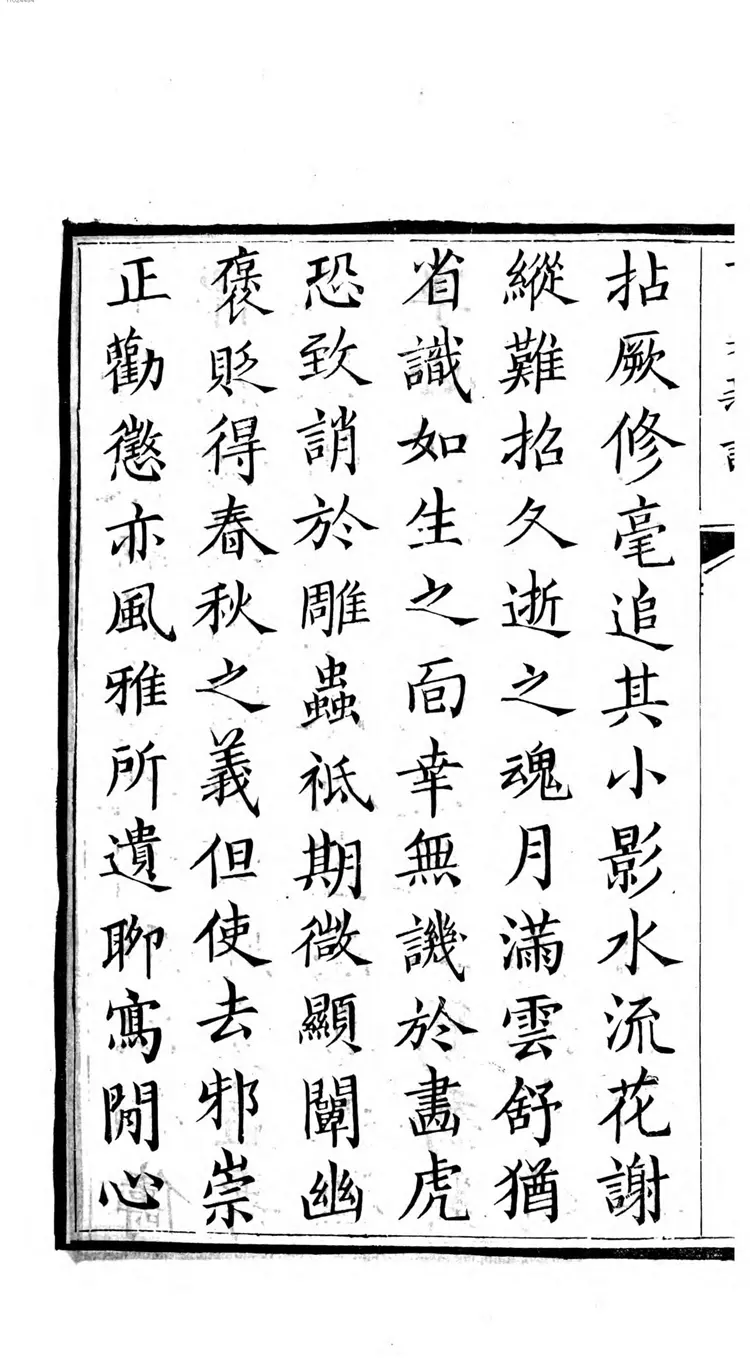 拈厥修毫追其小影水流花謝
縱難招久逝之魂月滿雲舒猶
省識如生之面幸無譏於畫虎
恐致誚於雕蟲祗期微顯闡幽
褒貶得春秋之義但使去邪崇
正勸懲亦風雅所遺聊寫閒心